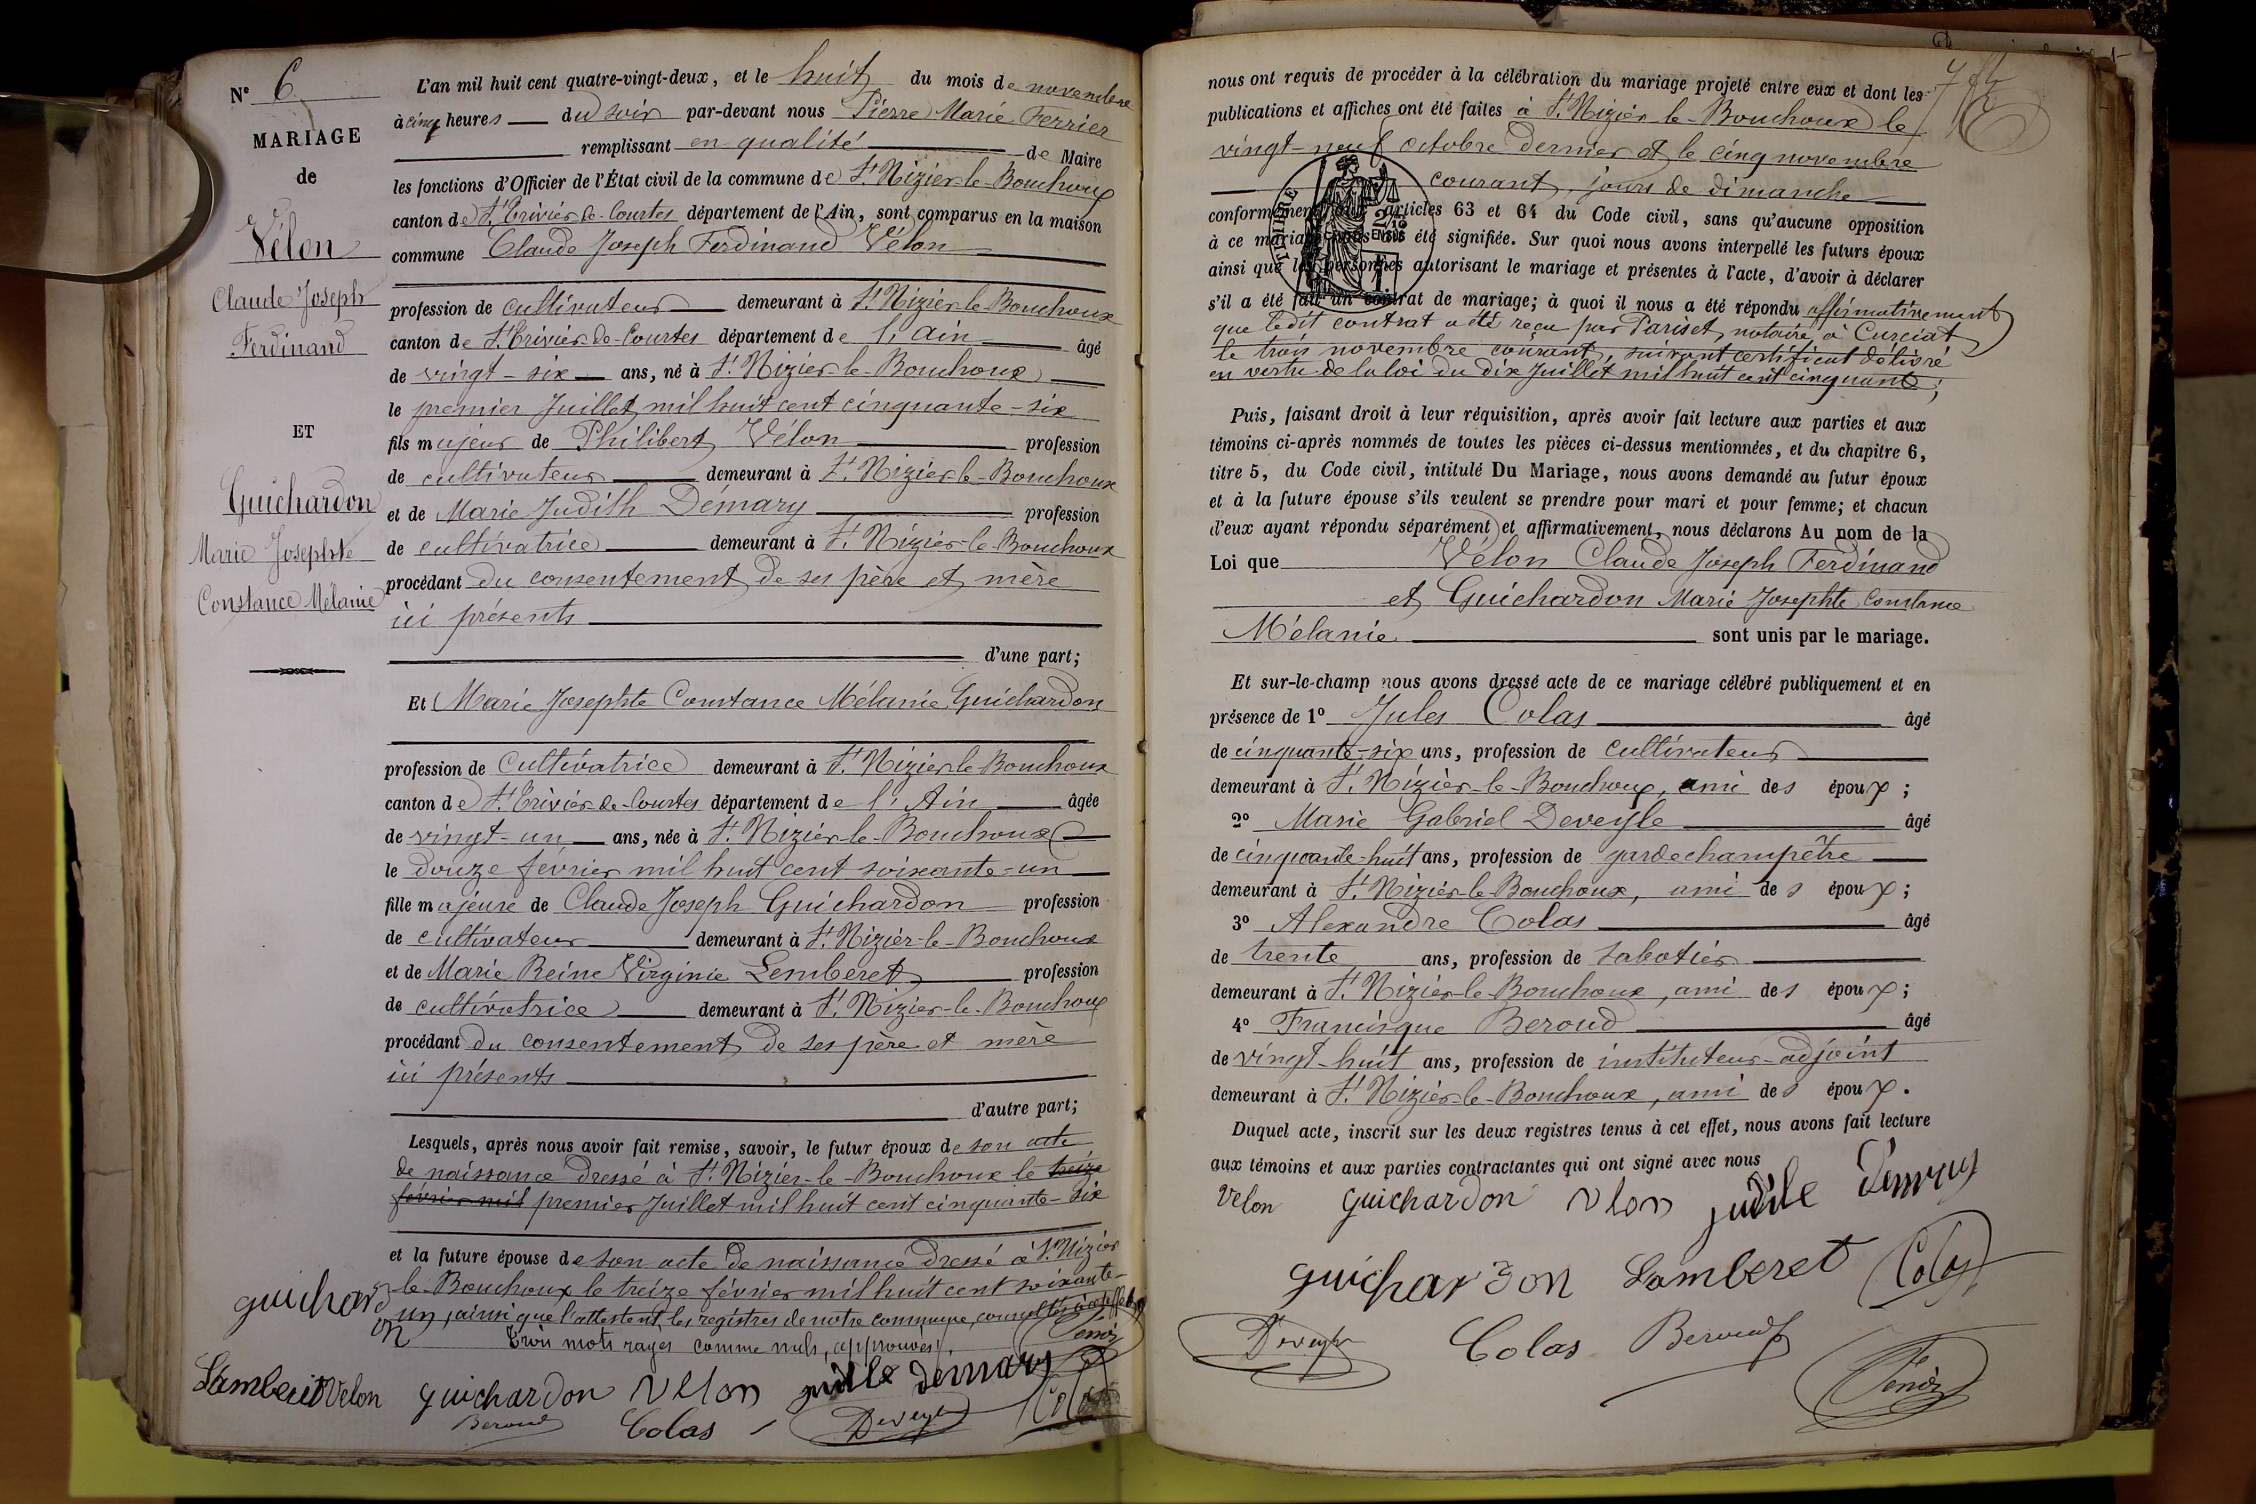 N° 6
MARIAGE
de
Vélon
Claude Joseph
Ferdinand
ET
Guichardon
Marie Josephte
Constance Mélanie
L'an mil huit cent quatre-vingt-deux, et le huit du mois de novembre
à cinq heures du soir par-devant nous Pierre Marie Ferrier
remplissant en qualité de Maire
les fonctions d'Officier de l'État civil de la commune de St Nizier-le-Bouchoux
canton de St Trivier-de-Courtes département de l'Ain, sont comparus en la maison
commune Claude Joseph Ferdinand Vélon
profession de cultivateur demeurant à St Nizier-le-Bouchoux
canton de St Trivier-de-Courtes département de l'Ain âgé
de vingt-six ans, né à St Nizier-le-Bouchoux
le premier Juillet mil huit cent cinquante-six
fils majeur de Philibert Vélon profession
de cultivateur demeurant à St Nizier-le-Bouchoux
et de Marie Judith Démary profession
de cultivatrice demeurant à St Nizier-le-Bouchoux
procédant du consentement de ses père et mère
ici présents
d'une part;
Et Marie Josephte Constance Mélanie Guichardon
profession de Cultivatrice demeurant à St Nizier-le-Bouchoux
canton de St Trivier-de-Courtes département de l'Ain âgée
de vingt-un ans, née à St Nizier-le-Bouchoux
le douze février mil huit cent soixante-un
fille majeure de Claude Joseph Guichardon profession
de cultivateur demeurant à St Nizier-le-Bouchoux
et de Marie Reine Virginie Lemberet profession
de cultivatrice demeurant à St Nizier-le-Bouchoux
procédant du consentement de ses père et mère
ici présents
d'autre part;
Lesquels, après nous avoir fait remise, savoir, le futur époux de son acte
de naissance dressé à St Nizier-le-Bouchoux le treize
février mil premier Juillet mil huit cent cinquante-six
et la future épouse de son acte de naissance dressé à St Nizier
le-Bouchoux le treize février mil huit cent soixante-
un, ainsi que l'attestent les registres de notre commune, consultés à cet effet
Trois mots rayés comme nuls, approuvés.
guichardon
Lamberet Velon guichardon Velon judile demary
Beroud Colas Deveyle Colas
nous ont requis de procéder à la célébration du mariage projeté entre eux et dont les
publications et affiches ont été faites à St Nizier-le-Bouchoux le
vingt-neuf octobre dernier et le cinq novembre
courant, jours de dimanche
conformément aux articles 63 et 64 du Code civil, sans qu'aucune opposition
à ce mariage nous ait été signifiée. Sur quoi nous avons interpellé les futurs époux
ainsi que les personnes autorisant le mariage et présentes à l'acte, d'avoir à déclarer
s'il a été fait un contrat de mariage; à quoi il nous a été répondu affirmativement
que ledit contrat a été reçu par Pariset, notaire à Curciat
le trois novembre courant, suivant certificat délivré
en vertu de la loi du dix Juillet mil huit cent cinquante;
TIMBRE
Puis, faisant droit à leur réquisition, après avoir fait lecture aux parties et aux
témoins ci-après nommés de toutes les pièces ci-dessus mentionnées, et du chapitre 6,
titre 5, du Code civil, intitulé Du Mariage, nous avons demandé au futur époux
et à la future épouse s'ils veulent se prendre pour mari et pour femme; et chacun
d'eux ayant répondu séparément et affirmativement, nous déclarons Au nom de la
Loi que Vélon Claude Joseph Ferdinand
et Guichardon Marie Josephte Constance
Mélanie sont unis par le mariage.
Et sur-le-champ nous avons dressé acte de ce mariage célébré publiquement et en
présence de 1° Jules Colas âgé
de cinquante-six ans, profession de cultivateur
demeurant à St Nizier-le-Bouchoux, ami des époux;
2° Marie Gabriel Deveyle âgé
de cinquante-huit ans, profession de garde champêtre
demeurant à St Nizier-le-Bouchoux, ami des époux;
3° Alexandre Colas âgé
de trente ans, profession de sabotier
demeurant à St Nizier-le-Bouchoux, ami des époux;
4° Francisque Beroud âgé
de vingt-huit ans, profession de instituteur-adjoint
demeurant à St Nizier-le-Bouchoux, ami des époux.
Duquel acte, inscrit sur les deux registres tenus à cet effet, nous avons fait lecture
aux témoins et aux parties contractantes qui ont signé avec nous
Velon guichardon Vlon judile
guichardon Lamberet Colas
Deveyle Colas Beroud